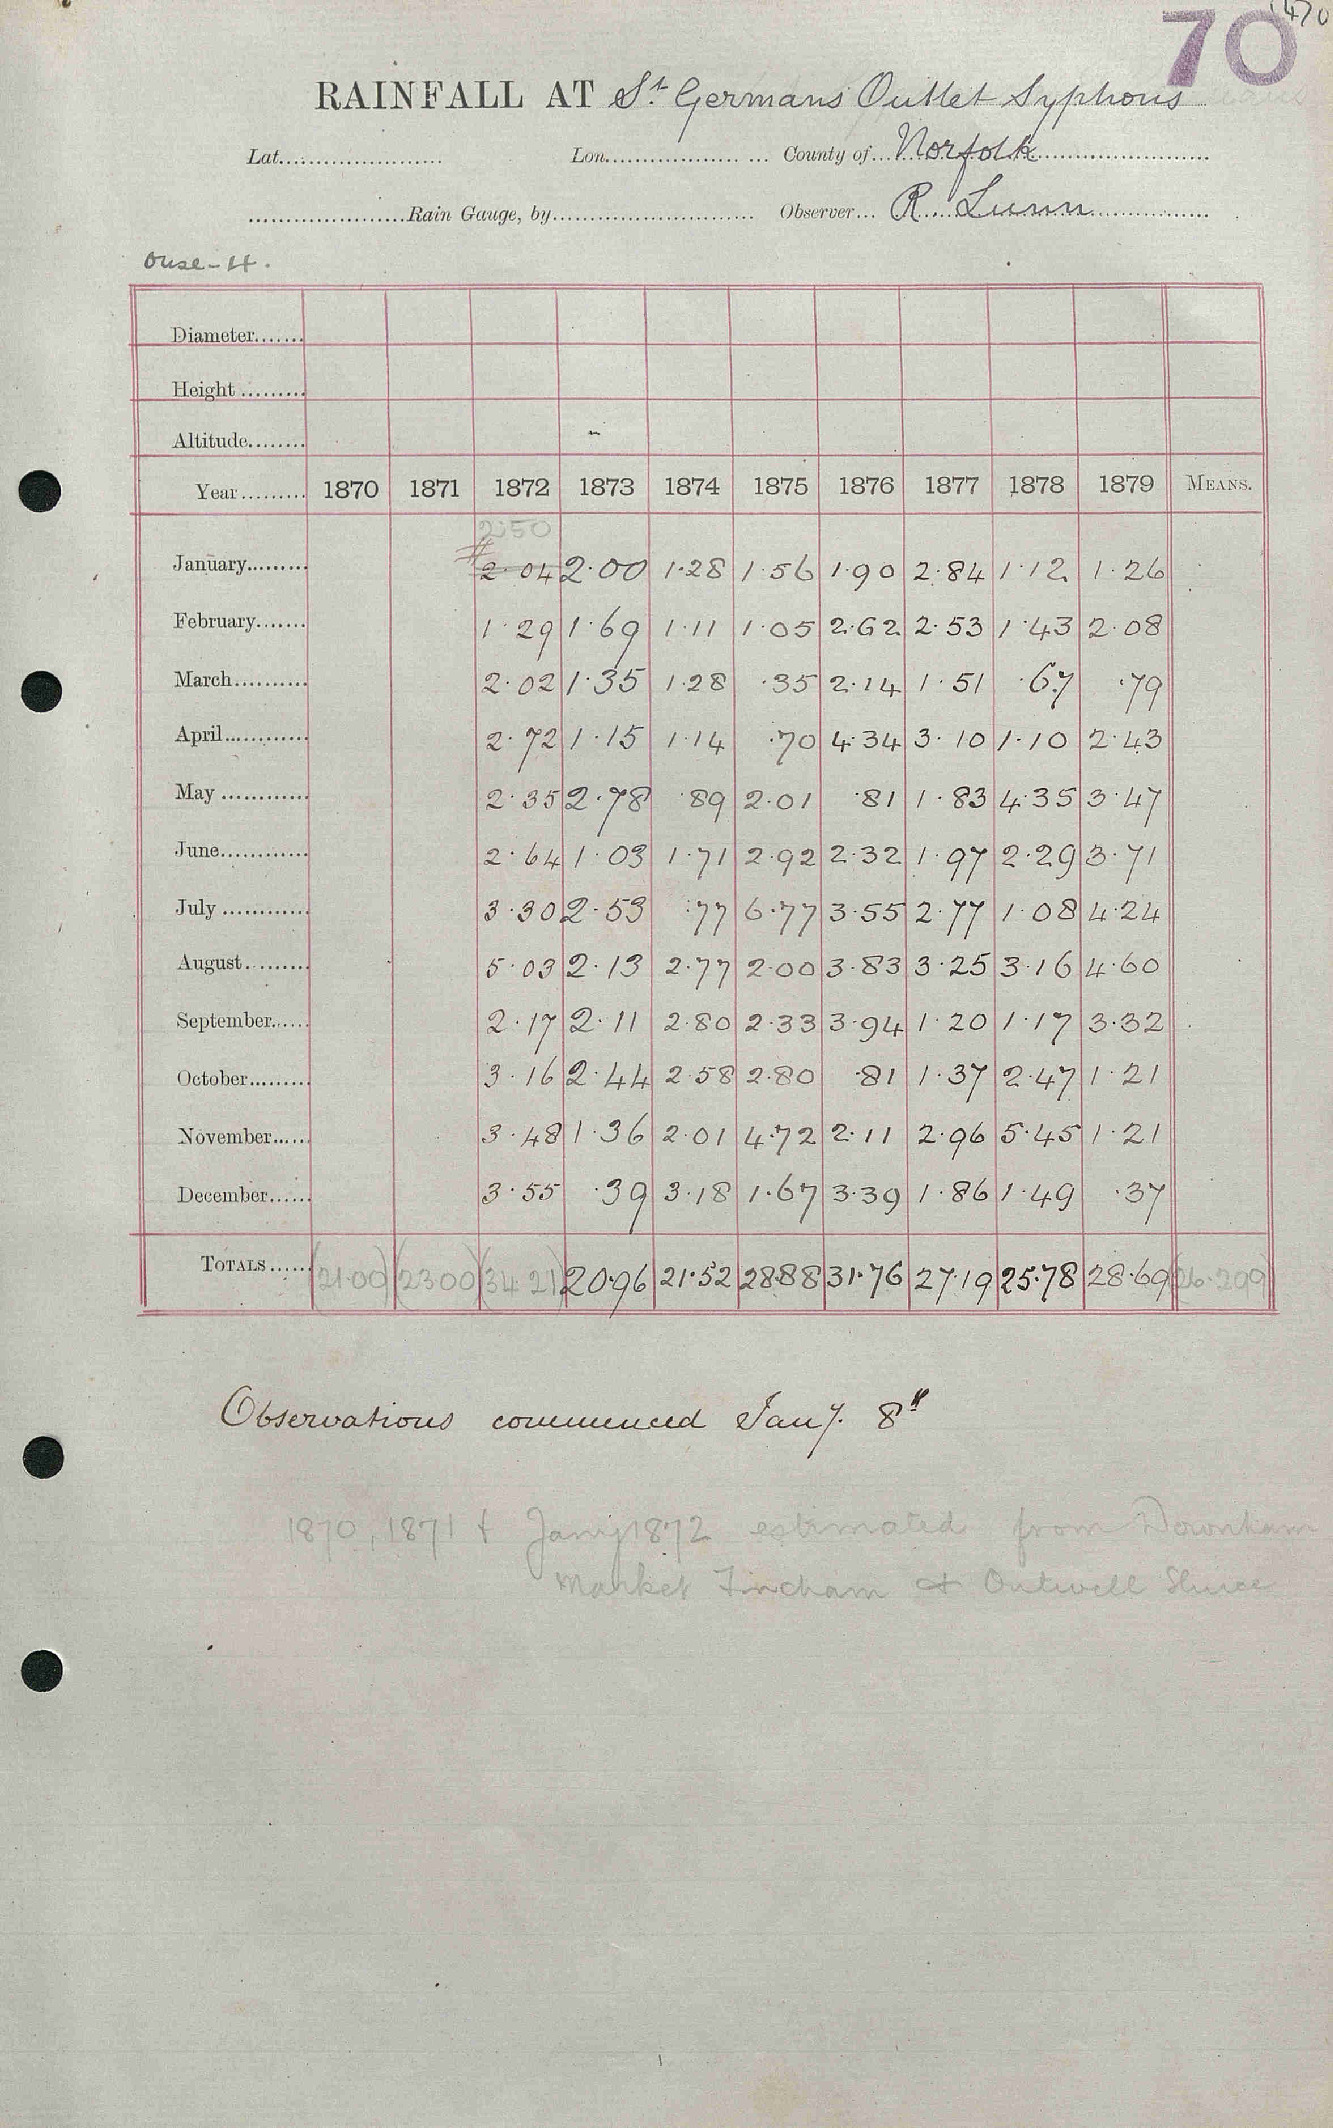 1470
70
RAINFALL AT St Germans Outlet Syphons
Lat. Lon. County of Norfolk
Rain Gauge, by Observer R. Lunn
Ouse-H.
Diameter
Height
Altitude
Year 1870 1871 1872 1873 1874 1875 1876 1877 1878 1879 MEANS.
2.50
January # 2.04 2.00 1.28 1.56 1.90 2.84 1.12 1.26
February 1.29 1.69 1.11 1.05 2.62 2.53 1.43 2.08
March 2.02 1.35 1.28 .35 2.14 1.51 .67 .79
April 2.72 1.15 1.14 .70 4.34 3.10 1.10 2.43
May 2.35 2.78 .89 2.01 .81 1.83 4.35 3.47
June 2.64 1.03 1.71 2.92 2.32 1.97 2.29 3.71
July 3.30 2.53 .77 6.77 3.55 2.77 1.08 4.24
August 5.03 2.13 2.77 2.00 3.83 3.25 3.16 4.60
September 2.17 2.11 2.80 2.33 3.94 1.20 1.17 3.32
October 3.16 2.44 2.58 2.80 .81 1.37 2.47 1.21
November 3.48 1.36 2.01 4.72 2.11 2.96 5.45 1.21
December 3.55 .39 3.18 1.67 3.39 1.86 1.49 .37
TOTALS (21.00) (23.00) (34.21) 20.96 21.52 28.88 31.76 27.19 25.78 28.69 (26.299)
Observations commenced Jany. 8th
1870, 1871 & Jany 1872 estimated from Downham
Market Fincham & Outwell Sluice